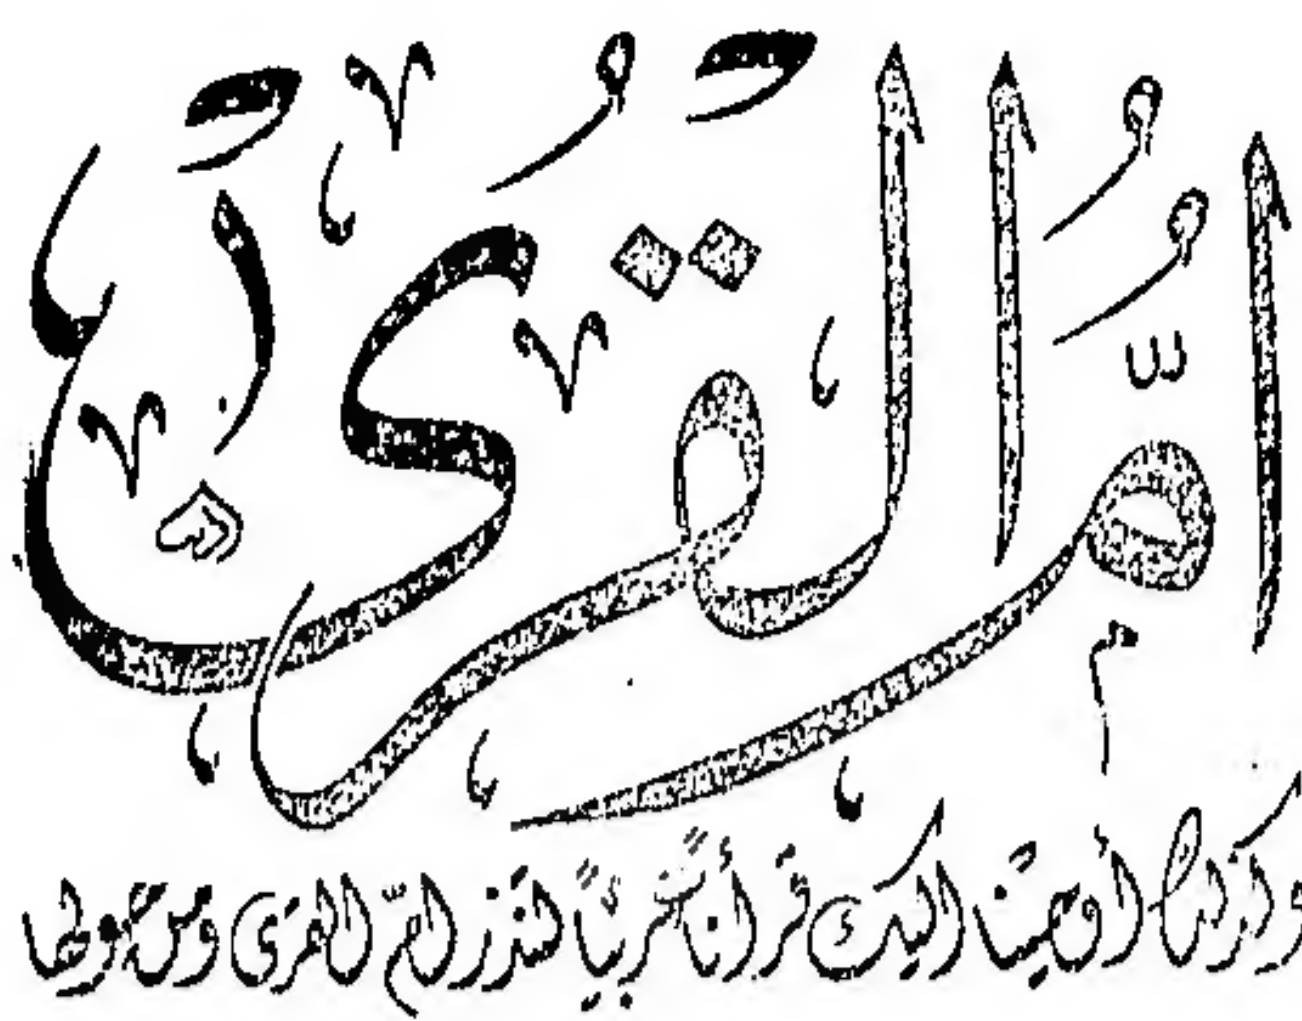 أُمُّ القُرَى
وكذلك أوحينا اليك قرأناً عربياً لتنذر امّ القرى ومن حولها